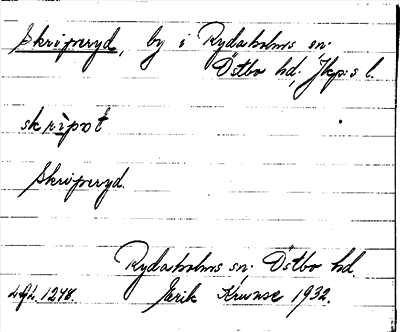 Skriperyd, by i Rydaholms sn.
Östbo hd, Jkp:s l.
skrìpot
Skriperyd.
Rydaholms sn. Östbo hd.
1278. Erik Kruuse 1932.